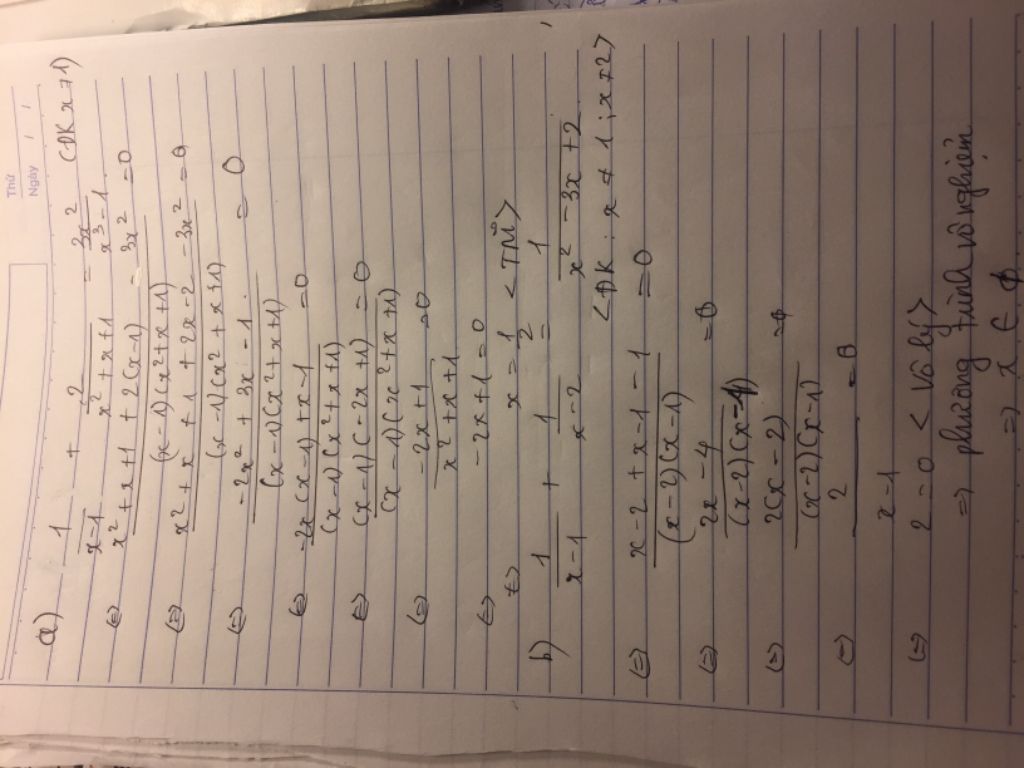 Thứ
Ngày / /
a) 1/(x-1) + 2/(x²+x+1) = 3x²/(x³-1) (ĐK x≠1)
⇔ (x²+x+1+2(x-1))/((x-1)(x²+x+1)) - 3x² = 0
⇔ (x²+x+1+2x-2-3x²)/((x-1)(x²+x+1)) = 0
⇔ (-2x²+3x-1)/((x-1)(x²+x+1)) = 0
⇔ (-2x(x-1)+x-1)/((x-1)(x²+x+1)) = 0
⇔ ((x-1)(-2x+1))/((x-1)(x²+x+1)) = 0
⇔ (-2x+1)/(x²+x+1) = 0
⇔ -2x+1=0
⇔ x = 1/2 <TM>
b) 1/(x-1) + 1/(x-2) = 1/(x²-3x+2)
<ĐK: x≠1; x≠2>
⇔ (x-2+x-1-1)/((x-2)(x-1)) = 0
⇔ (2x-4)/((x-2)(x-1)) = 0
⇔ 2(x-2)/((x-2)(x-1)) = 0
⇔ 2/(x-1) = 0
⇔ 2=0 <Vô lý>
⇒ phương trình vô nghiệm.
⇒ x ∈ ϕ